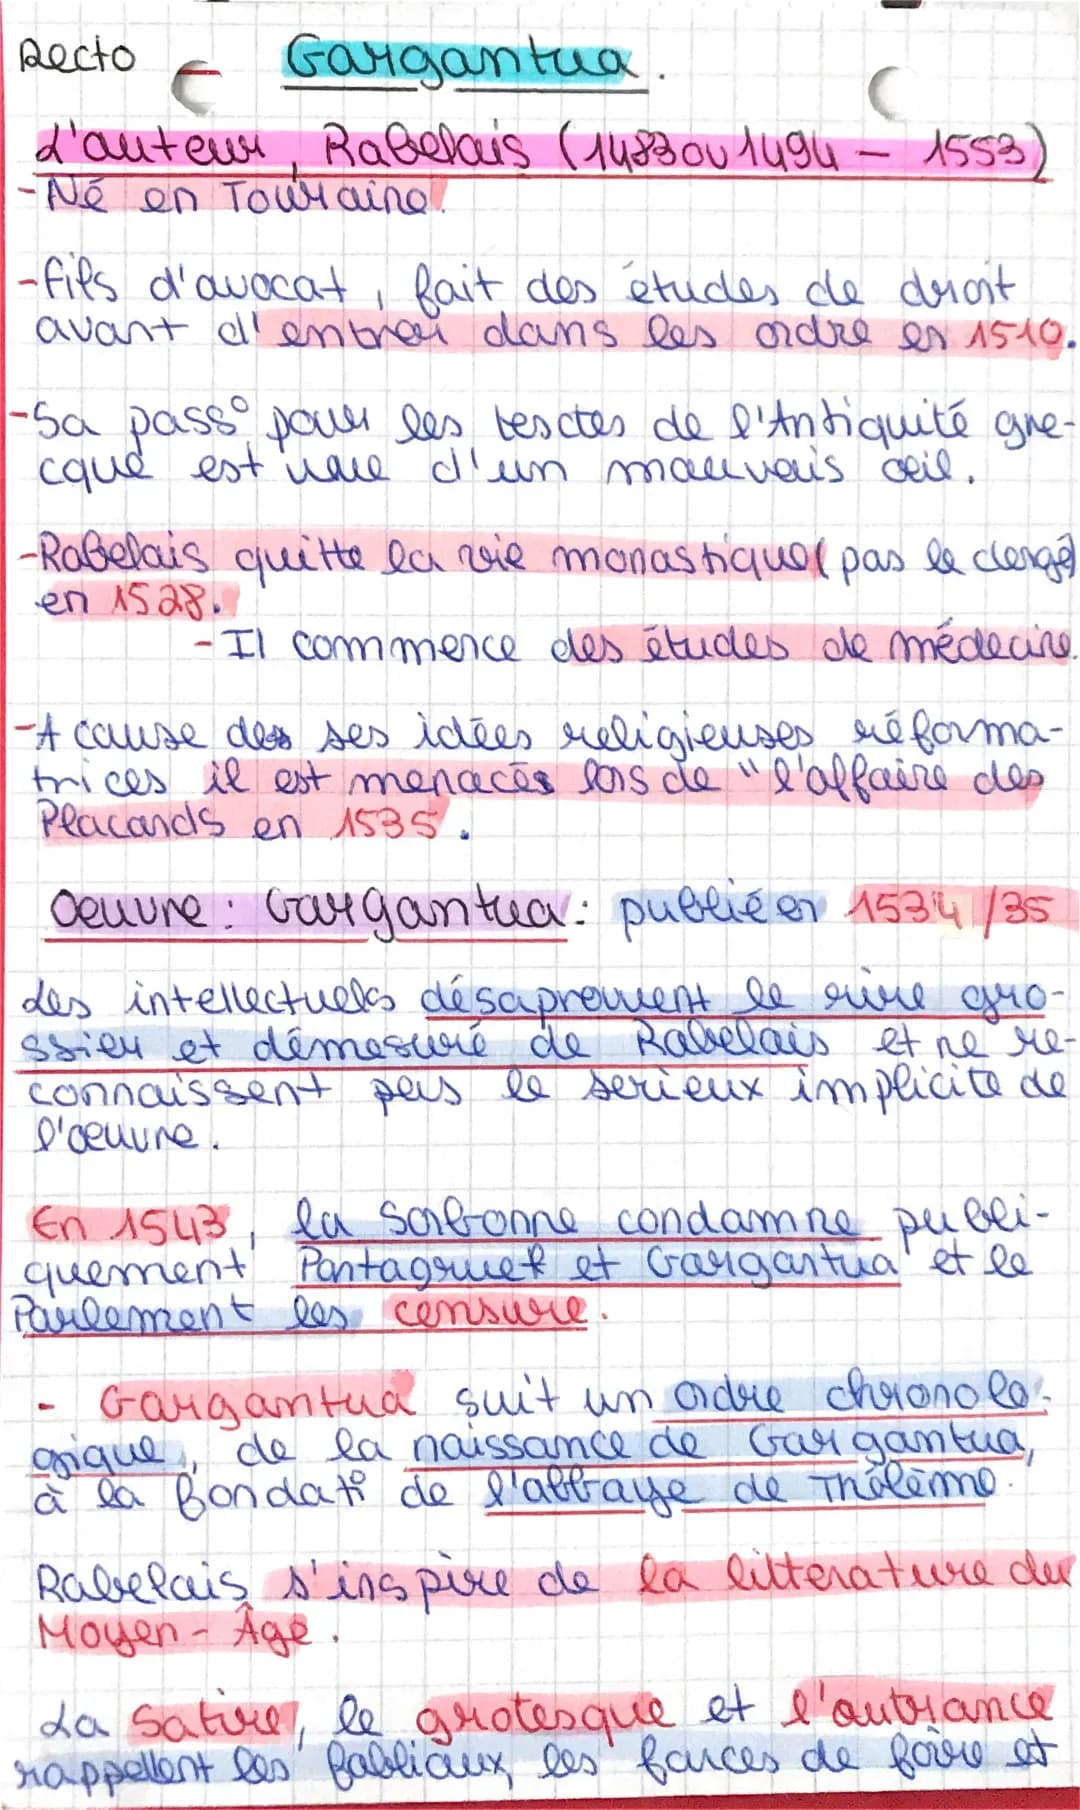 Recto
Gargantua.
L'auteur, Rabelais (1483 ou 1494 – 1553)
- Né en Touraine.
- fils d'avocat, fait des études de droit
avant d'entrer dans les ordre en 1510.
- Sa pass° pour les textes de l'Antiquité gre-
cque est vue d'un mauvais œil.
- Rabelais quitte la vie monastique (pas le clergé)
en 1528.
- Il commence des études de médecine.
- A cause des ses idées religieuses réforma-
trices il est menacés lors de "l'affaire des
Placards en 1535.
Oeuvre : Gargantua : publié en 1534/35
Les intellectuels désaprouvent le rire gro-
ssier et démesuré de Rabelais et ne re-
connaissent pas le serieux implicite de
l'œuvre.
En 1543, la Sorbonne condamne publi-
quement Pantagruel et Gargantua et le
Parlement les censure.
- Gargantua suit un ordre chronolo-
gique, de la naissance de Gargantua,
à la fondat° de l'abbaye de Thélème.
Rabelais s'inspire de la litterature du
Moyen-Âge.
La satire, le grotesque et l'outrance
rappellent les fabliaux, les farces de foire et